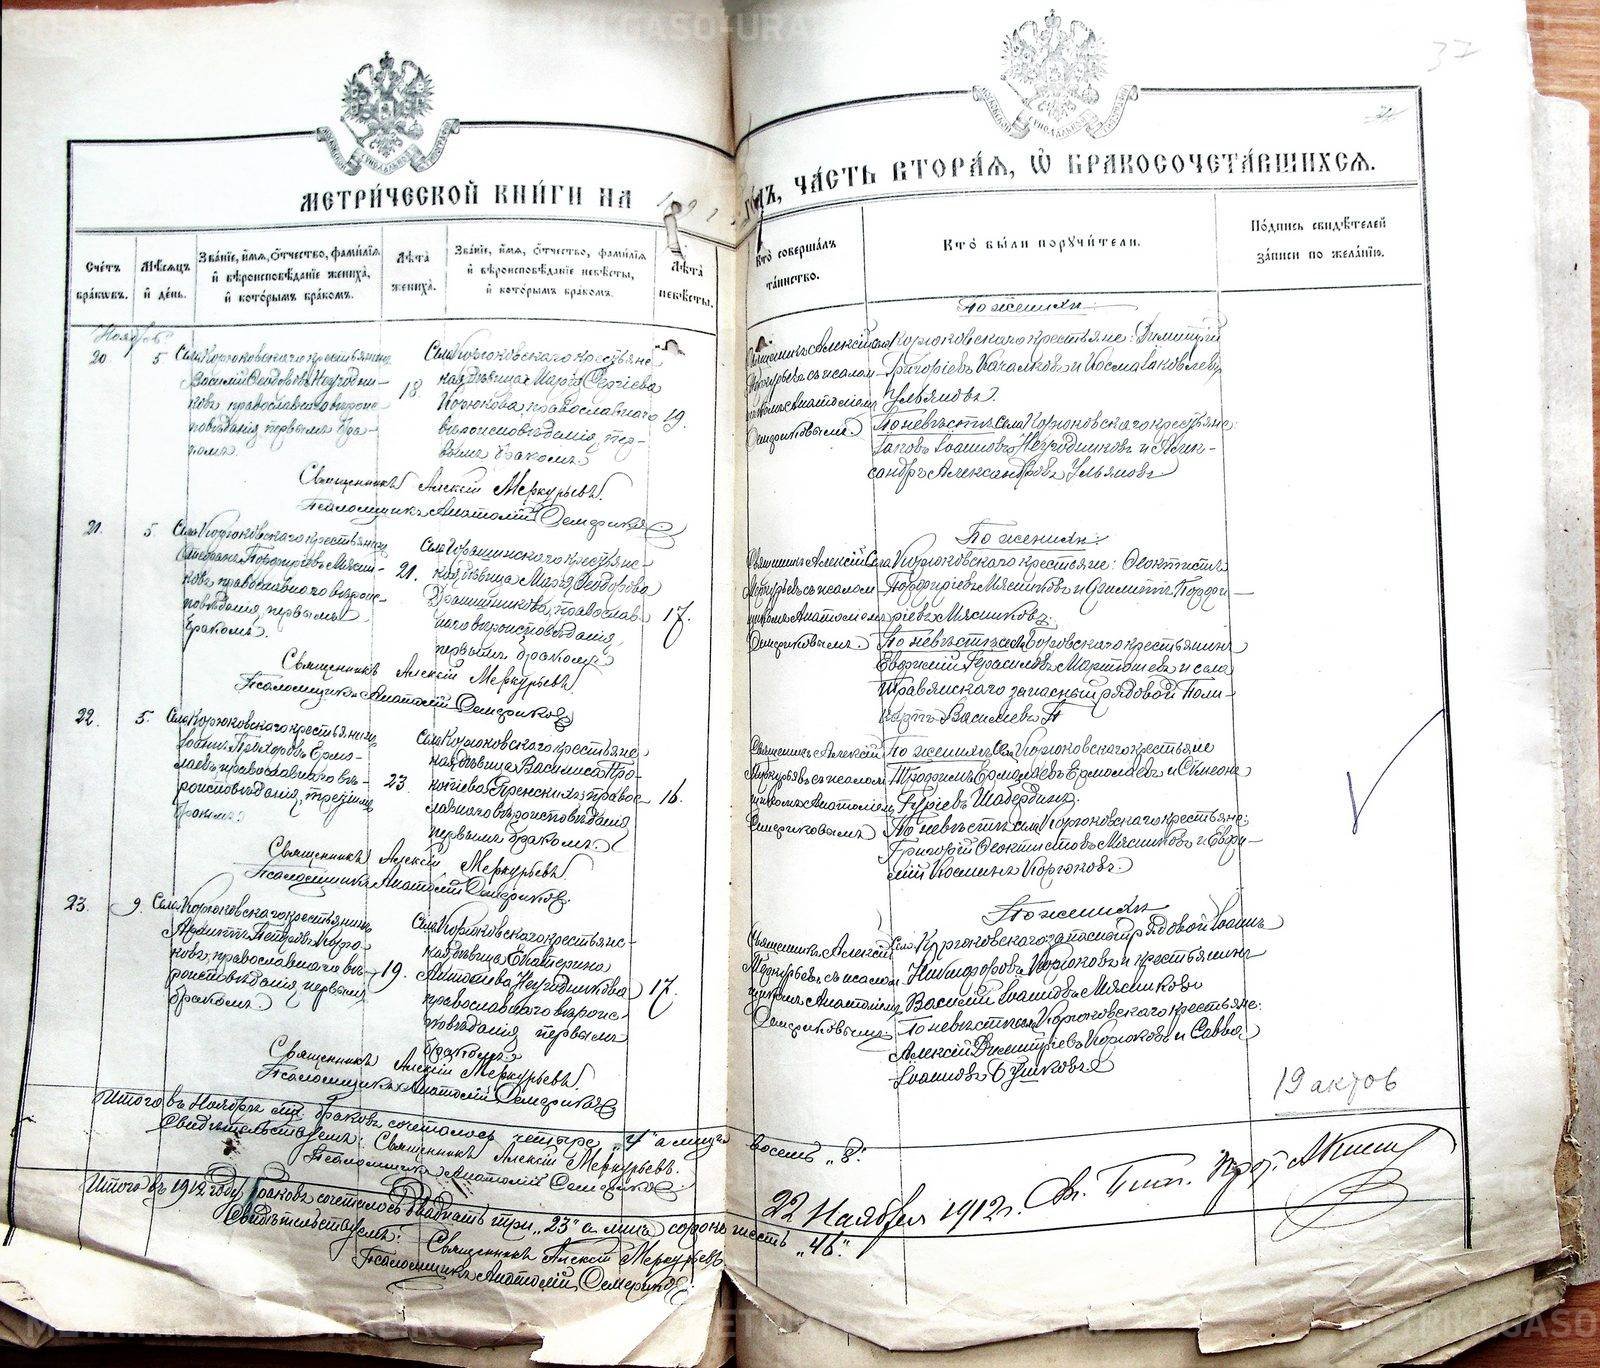 МЕТРИ́ЧЕСКОЙ КНИ́ГИ НА 1912 го́дъ, ЧА́СТЬ ВТОРА́Я, Ѡ҆ БРАКОСОЧЕТА́ВШИХСЯ.
Сче́тъ бра́кѡвъ.
Мѣ́сяцъ и҆ де́нь.
Зва́нїе, и҆́мя, ѻ҆́тчество, фами́лїя
и҆ вѣроисповѣ́данїе жениха́,
и҆ кото́рымъ бра́комъ.
Лѣ́та жениха́.
Зва́нїе, и҆́мя, ѻ҆́тчество, фами́лїя
и҆ вѣроисповѣ́данїе невѣ́сты,
и҆ кото́рымъ бра́комъ.
Лѣ́та невѣ́сты.
Кто̀ соверша́лъ
та́инство.
Кто̀ бы́ли поручи́тели.
По́дпись свидѣ́телей
за́писи по жела́нїю.
Ноябрь
20.
5
Села Корюковскаго крестьянинъ
Василій Ѳеодоровъ Негодяи-
ковъ православнаго вѣроис-
повѣданія, первымъ бра-
комъ.
18.
Села Корюковскаго крестьянс-
кая дѣвица Марія Сергіева
Корюкова, православнаго
вѣроисповѣданія, пер-
вымъ бракомъ.
19.
Священникъ Алексій
Меркурьевъ съ псалом-
щикомъ Анатоліемъ
Семериковымъ.
По женихѣ:
Села Корюковскаго крестьяне: Димитрій
Григоріевъ Качалковъ и Косма Іаковлевъ
Ульяновъ.
По невѣстѣ: села Корюковскаго крестьяне:
Іаковъ Іоанновъ и Алек-
сандръ Александровъ Ульяновъ
Священникъ Алексій Меркурьевъ.
Псаломщикъ Анатолій Семериковъ
21.
5.
Села Корюковскаго крестьянинъ
Порфиріевъ Мясни-
ковъ православнаго вѣроис-
повѣданія, первымъ
бракомъ.
21.
крестьянс-
кая дѣвица Марія Ѳеодорова
православ-
наго вѣроисповѣданія,
первымъ бракомъ.
17.
Священникъ Алексій
Меркурьевъ съ псалом-
щикомъ Анатоліемъ
Семериковымъ.
По женихѣ:
Села Корюковскаго крестьяне: Ѳеоктистъ
Порфиріевъ Мясниковъ и Филиппъ Порфи-
ріевъ Мясниковъ.
По невѣстѣ: села крестьянинъ
Евфимій Герасимовъ Мартюшевъ и села
Травянскаго запасный рядовой Поли-
карпъ Васильевъ
Священникъ Алексій Меркурьевъ.
Псаломщикъ Анатолій Семериковъ
22.
5.
Села Корюковскаго крестьянинъ
Іоаннъ Прохоровъ Ермо-
лаевъ православнаго вѣ-
роисповѣданія, третьимъ
бракомъ.
23.
Села Корюковскаго крестьянс-
кая дѣвица Василиса Про-
копіева правос-
лавнаго вѣроисповѣданія
первымъ бракомъ.
16.
Священникъ Алексій
Меркурьевъ съ псалом-
щикомъ Анатоліемъ
Семериковымъ
По женихѣ: села Корюковскаго крестьяне
Трофимъ Ермолаевъ Ермолаевъ и Сѵмеонъ
Гуріевъ Шабердинъ.
По невѣстѣ: села Корюковскаго крестьяне:
Григорій Ѳеоктистовъ Мясниковъ и Евфи-
мій Косминъ Корюковъ.
Священникъ Алексій Меркурьевъ.
Псаломщикъ Анатолій Семериковъ.
23.
9.
Села Корюковскаго крестьянинъ
Петровъ Корю-
ковъ, православнаго вѣ-
роисповѣданія первымъ
бракомъ.
19.
Села Корюковскаго крестьянс-
кая дѣвица Екатерина
православнаго вѣроис-
повѣданія первымъ
бракомъ.
17.
Священникъ Алексій
Меркурьевъ съ псалом-
щикомъ Анатоліемъ
Семериковымъ.
По женихѣ
Села Корюковскаго запасный рядовой Іоаннъ
Никифоровъ Корюковъ и крестьянинъ
Василій Іоанновъ Мясниковъ
По невѣстѣ: села Корюковскаго крестьяне:
Алексій Димитріевъ Корюковъ и Савва
Іоанновъ Бушковъ
Священникъ Алексій Меркурьевъ.
Псаломщикъ Анатолій Семериковъ
19 актов
Итого въ Ноябрѣ мц. браковъ сочеталось четыре „4“ а лицъ восемь „8“.
Свидѣтельствуемъ: Священникъ Алексій Меркурьевъ.
Псаломщикъ Анатолій Семериковъ.
Итого въ 1912 году браковъ сочеталось двадцать три „23“ а лицъ сорокъ шесть „46“.
Свидѣтельствуемъ: Священникъ Алексій Меркурьевъ
Псаломщикъ Анатолій Семериковъ
22 Ноября 1912 г.